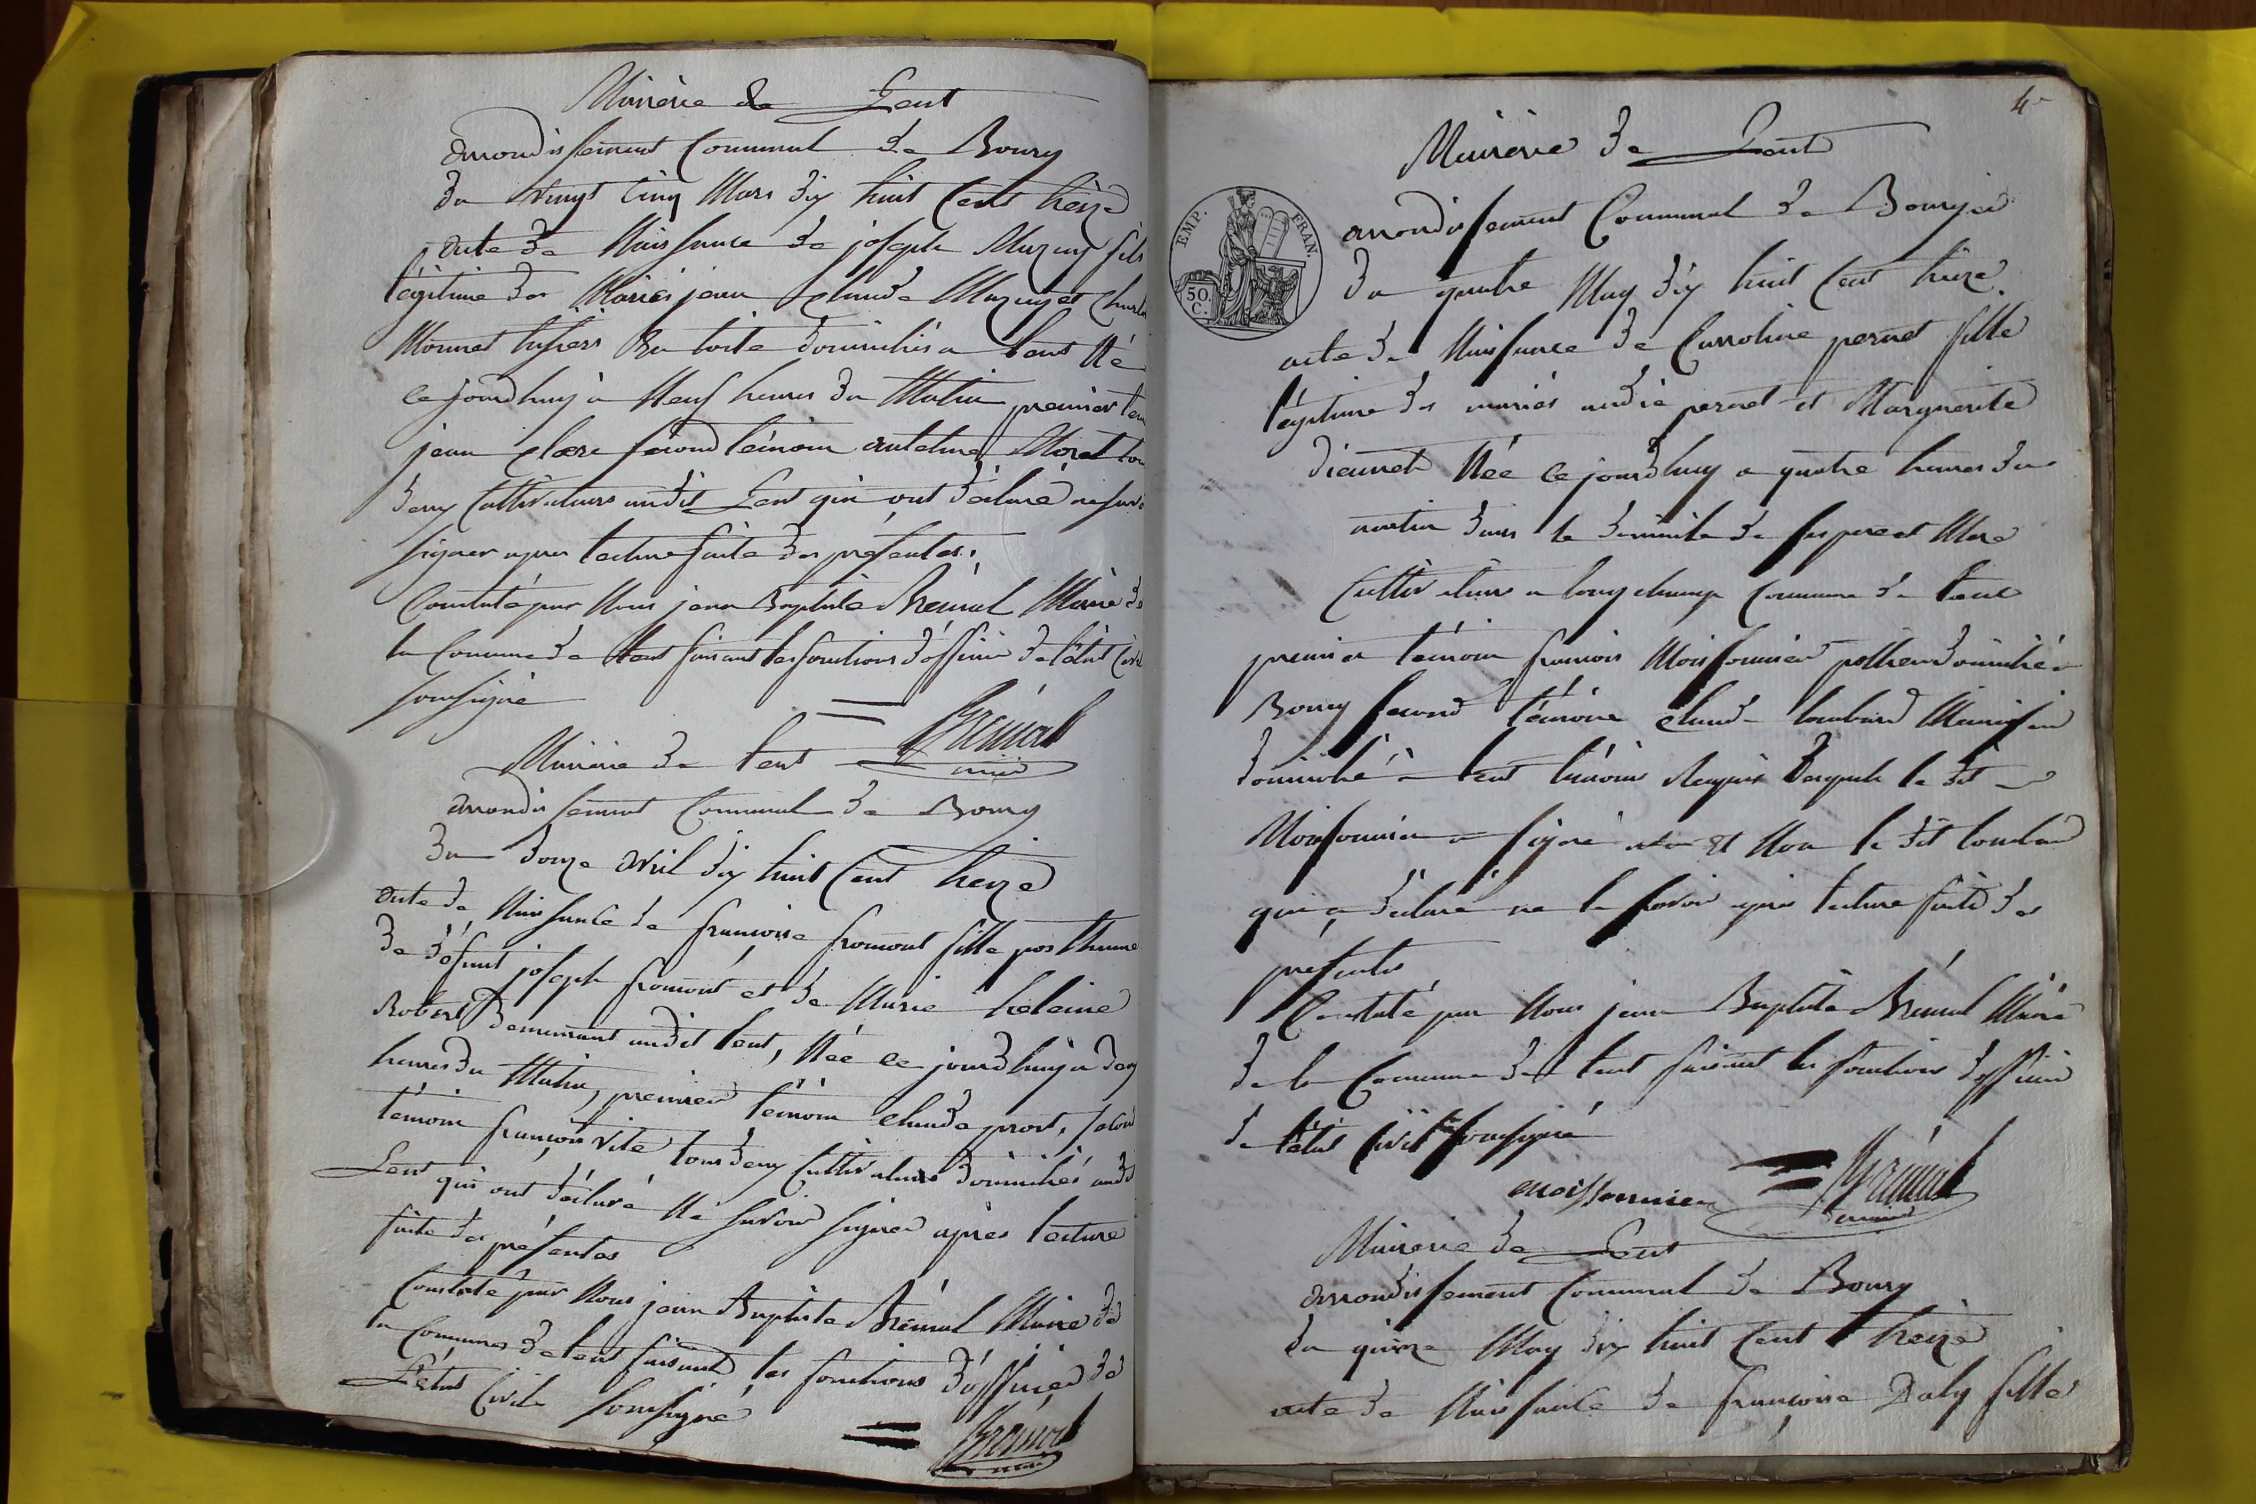 Mairerie de Lent
arrondissement Communal de Bourg
du vingt cinq Mars dix huit Cent treize
acte de Naissance de joseph Mazuy fils
légitime des Mariés jean Claude Mazuy et
Monnet tissiers en toile domiciliés a Lent Né
ce jourdhuy à Neuf heures du Matin premier
jean second témoin antelme Morel
deux Cultivateurs audit Lent qui ont déclaré
signer apres lecture faite des présentes.
Constaté par Nous jean Baptiste Brémal Maire de
la Commune de Lent faisant les fonctions d'officier de l'état
soussigné
Brémal
maire
Mairerie de Lent
arrondissement Communal de Bourg
du douze avril dix huit Cent treize
acte de Naissance de françoise fromont fille posthume
de défunt joseph fromont et de Marie heleine
Robert demeurant audit Lent, Née ce jourdhuy a deux
heures du Matin, premier témoin claude prost, second
témoin françois vite tous deux Cultivateurs domiciliés audit
Lent qui ont déclaré Né savoir signer après lecture
faite des présentes
Constaté par Nous jean Baptiste Brémal Maire de
la Commune de Lent faisant les fonctions d'officier de
L'état Civile soussigné
Brémal
maire
4
Mairerie de Lent
EMP. FRAN.
50. C.
arrondissement Communal de Bourg
du quatre May dix huit Cent treize
acte de Naissance de Carroline pernet fille
légitime des mariés andré pernet et Marguerite
Née ce jourdhuy a quatre heures du
matin dans le domicile de ses pere et Mere
Cultivateurs a longchamp Commune de Lent
premier témoin françois Moissonnier domicilié a
Bourg second témoin claude lombard
domicilié à Lent témoins Requis Desquels le dit
Moissonnier a signé et Non le dit lombard
qui a déclaré ne le savoir après lecture faite des
présentes
Constaté par Nous jean Baptiste Brémal Maire
de la Commune de Lent faisant les fonctions d'officier
de l'état Civil soussigné
moissonnier
Brémal
maire
Mairerie de Lent
arrondissement Communal de Bourg
du quinze May dix huit Cent treize
acte de Naissance de françoise Daly fille